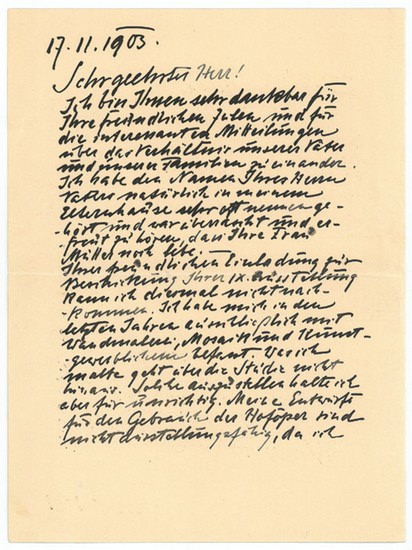 17.11.1903.
Sehr geehrter Herr!
Ich bin Ihnen sehr dankbar für
Ihre freundlichen Zeilen und für
die interessanten Mitteilungen
über das Verhältnis unserer Väter
und unserer Familien zu einander.
Ich habe den Namen Ihres Herrn
Vaters natürlich in meinem
Elternhause sehr oft nennen ge-
hört und war überrascht und er-
freut zu hören, dass Ihre Frau
Mutter noch lebe.
Ihrer freundlichen Einladung zur
Beschickung Ihrer IX. Ausstellung
kann ich diesmal nicht nach-
-kommen. Ich habe mich in den
letzten Jahren ausschließlich mit
Wandmalerei, Mosaik und Kunst-
-gewerblichem befasst. Was ich
malte geht über die Studie nicht
hinaus. Solche auszustellen halte ich
aber für unrichtig. Meine Entwürfe
für den Gebrauch der Hofoper sind
nicht ausstellungsfähig, da ich